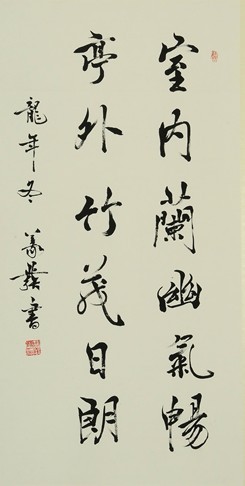 室内蘭幽氣暢
亭外竹茂日朗
龍年冬
書